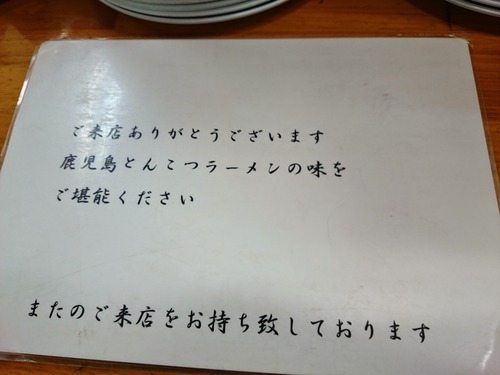 ご来店ありがとうございます
鹿児島とんこつラーメンの味を
ご堪能ください
またのご来店をお持ち致しております